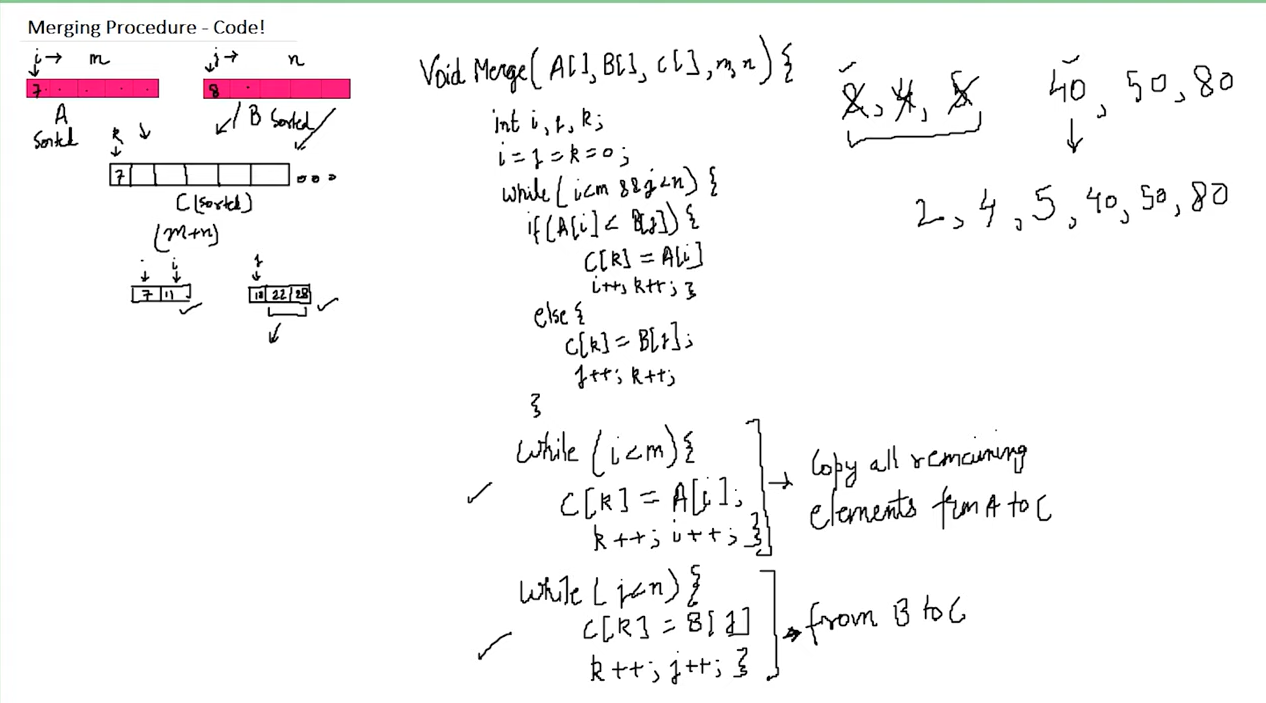 Merging Procedure - Code!
i → m
j → n
7
8
A
Sorted
B Sorted
k
7
C (sorted)
(m+n)
i
j
7 11
18 22 28
Void Merge( A[], B[], C[], m, n) {
int i, j, k;
i = j = k = 0;
while (i<m && j<n) {
if (A[i] < B[j]) {
C[k] = A[i]
i++, k++; }
else {
C[k] = B[j];
j++; k++;
}
while (i<m) {
C[k] = A[i];
k++; i++; }
Copy all remaining
elements from A to C
while ( j<n) {
C[k] = B[j]
k++; j++; }
from B to C
2, 4, 5 40, 50, 80
2, 4, 5, 40, 50, 80